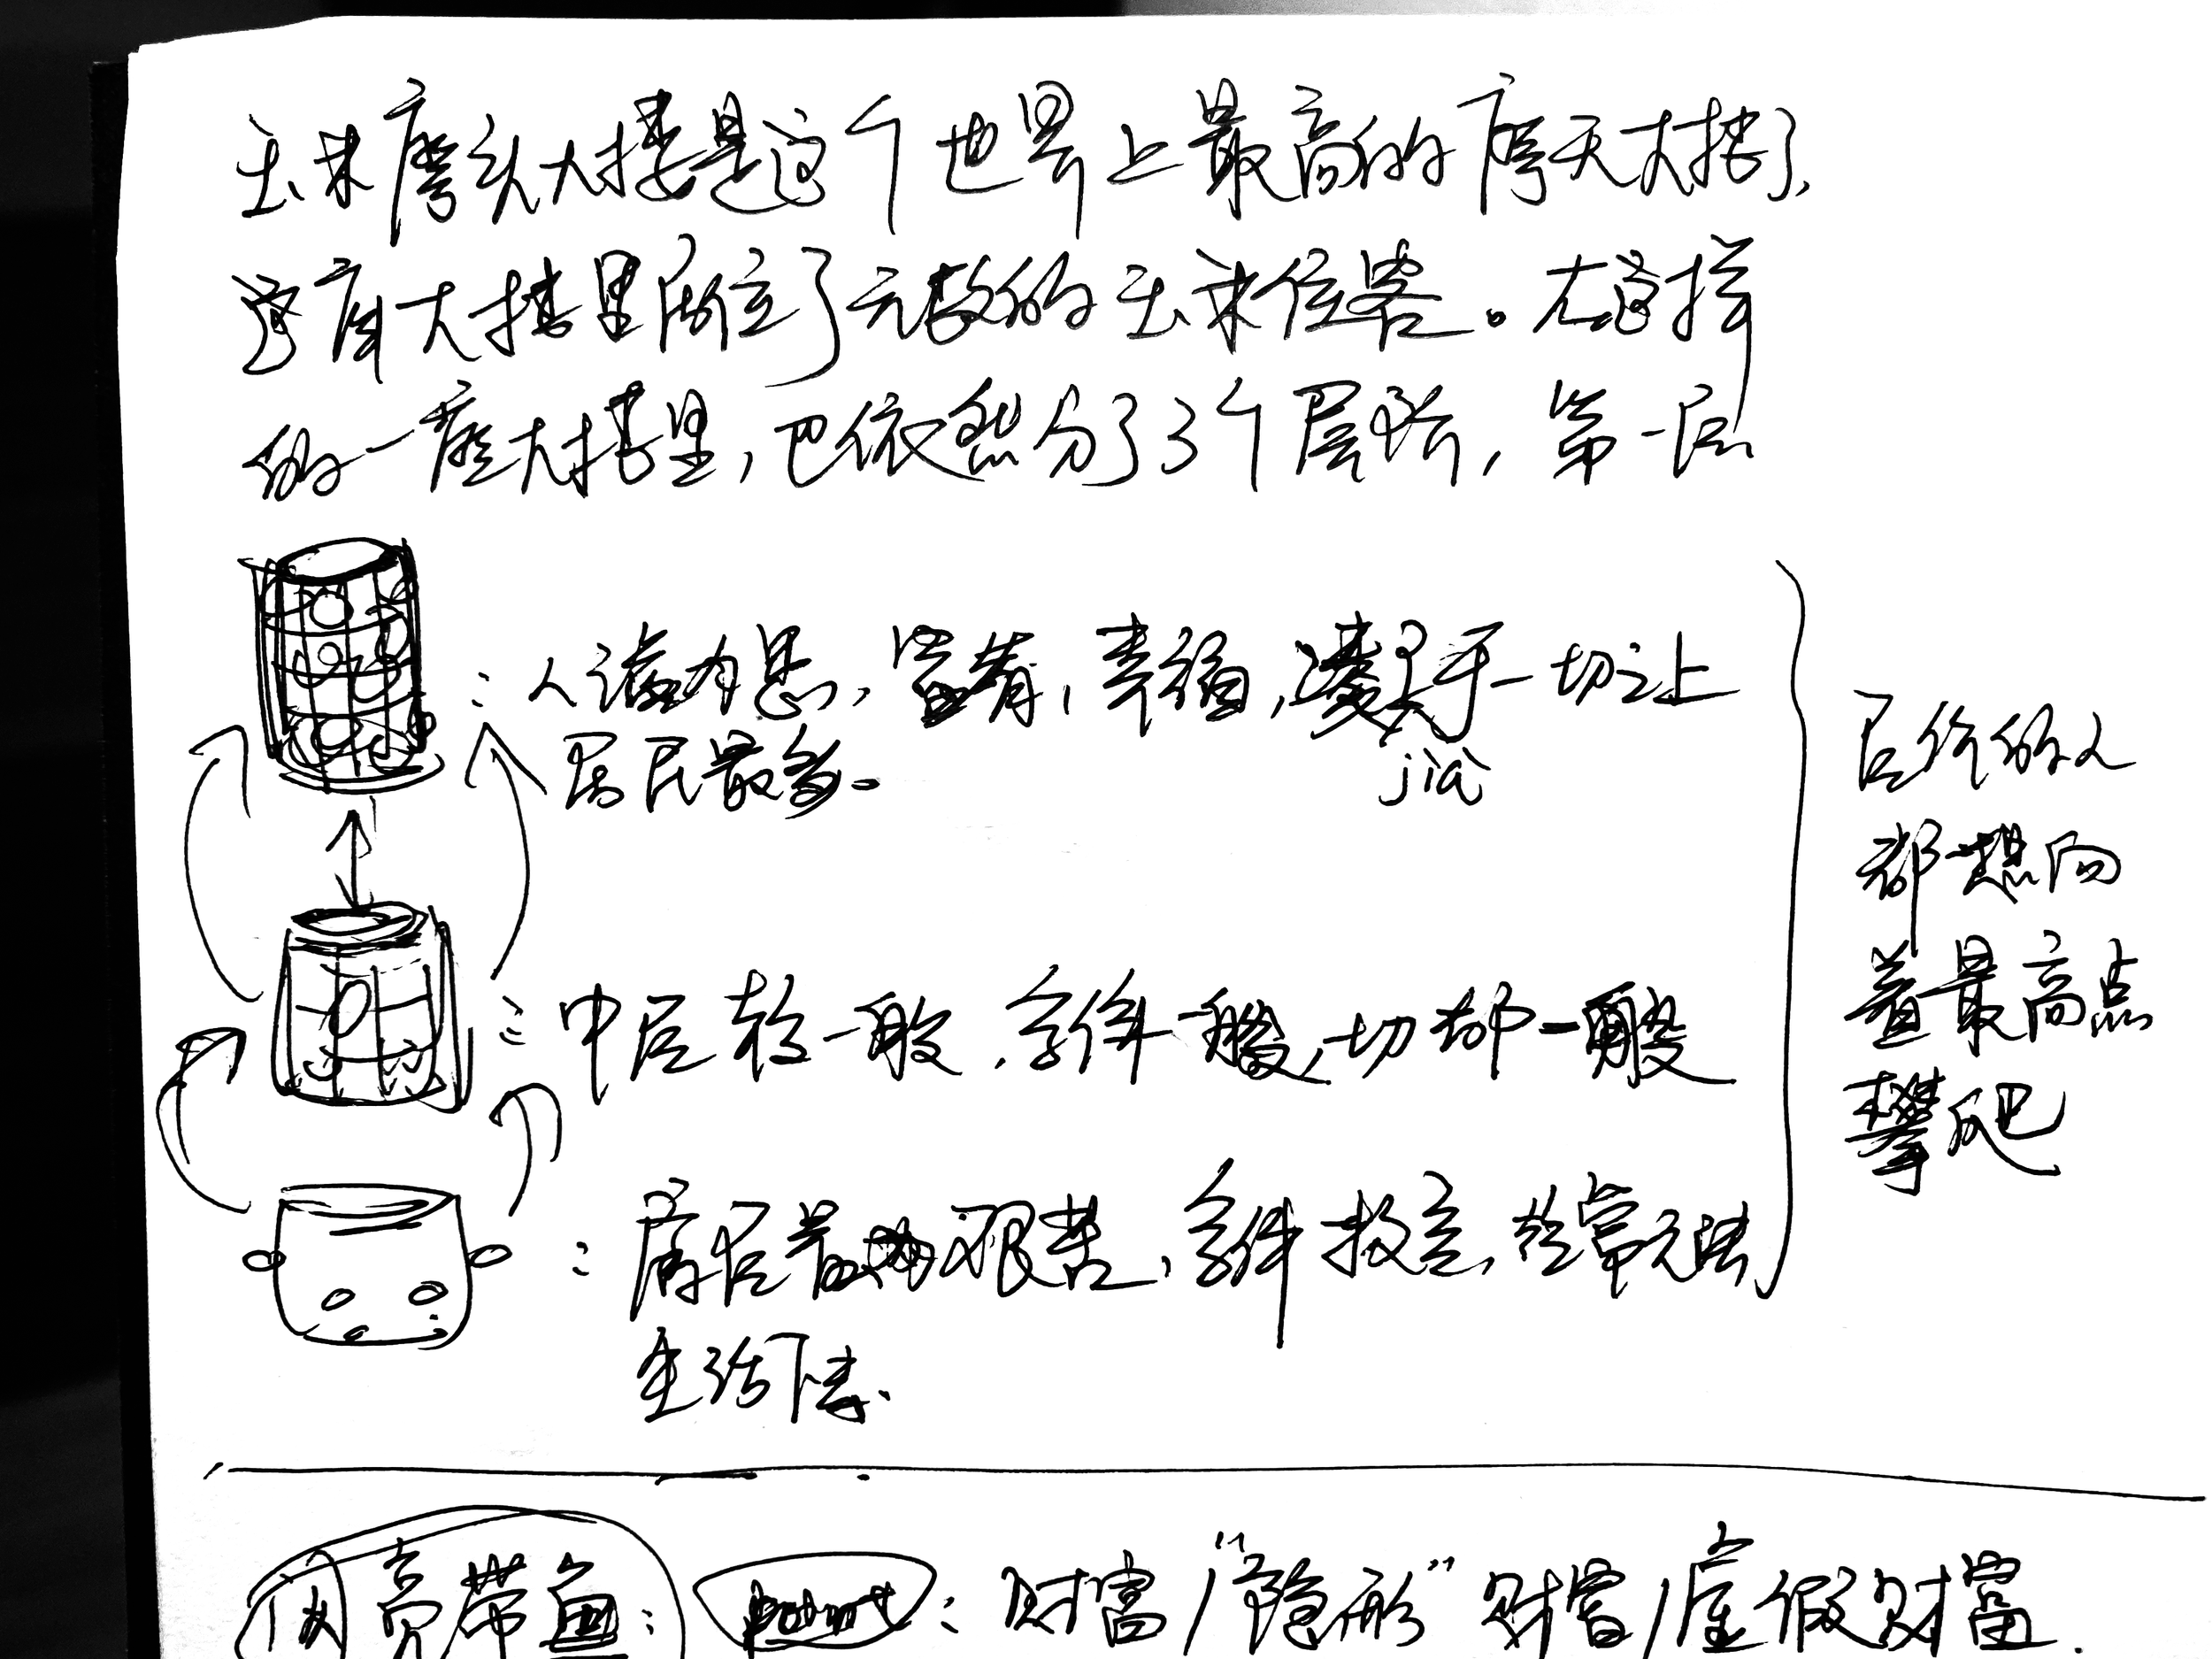 玉米摩天大楼是这个世界上最高的摩天大楼了,
这座大楼里居住了无数的玉米住客。在这样
的一座大楼里,也依然分了3个层阶,第一层
:人满为患,富有,幸福,凌驾于一切之上
jià
居民最多。
:中层较一般,条件一般,一切都一般
:底层最艰苦,条件极差,经常无法
生活下去.
层阶的人
都想向
着最高点
攀爬
亮带鱼: : 财富/"隐形"财富/虚假财富.